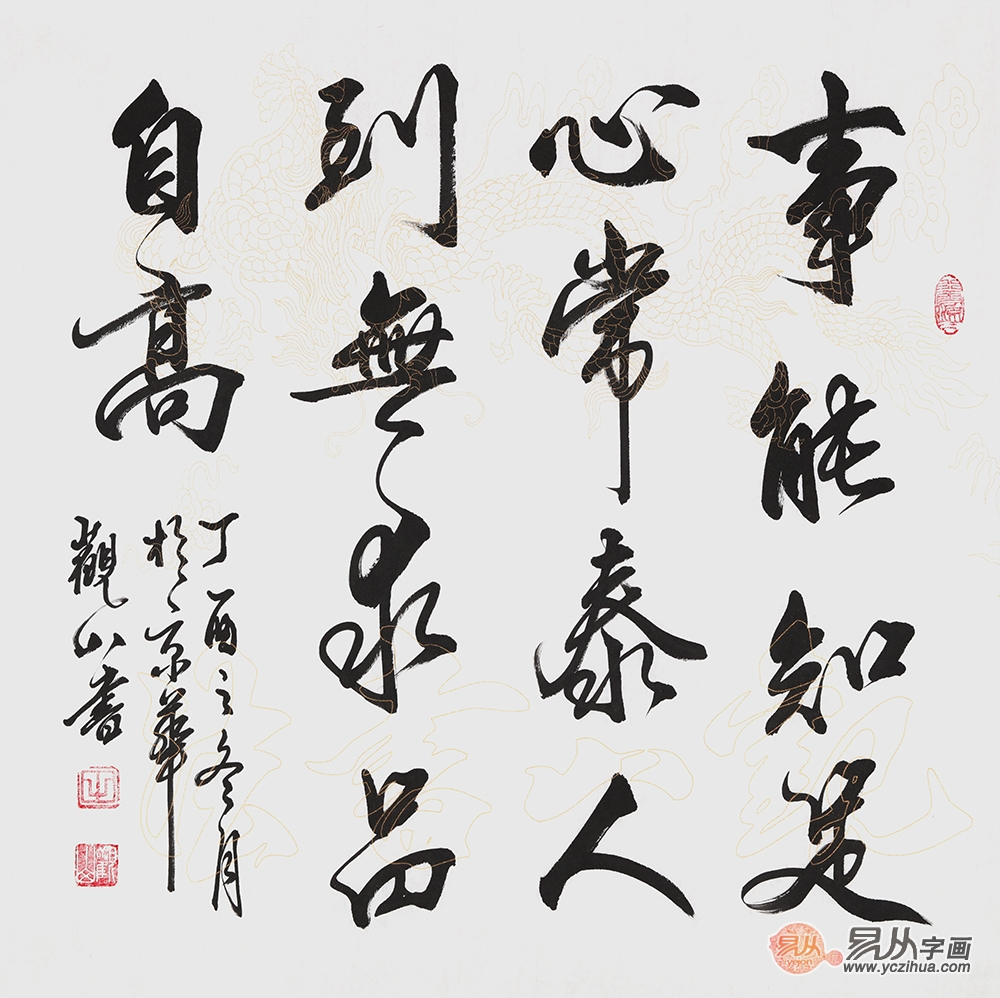 事能知足
心常泰人
到無求品
自高
丁酉之冬月
於京華
觀山書
易从字画
www.yczihua.com
易从
yicon